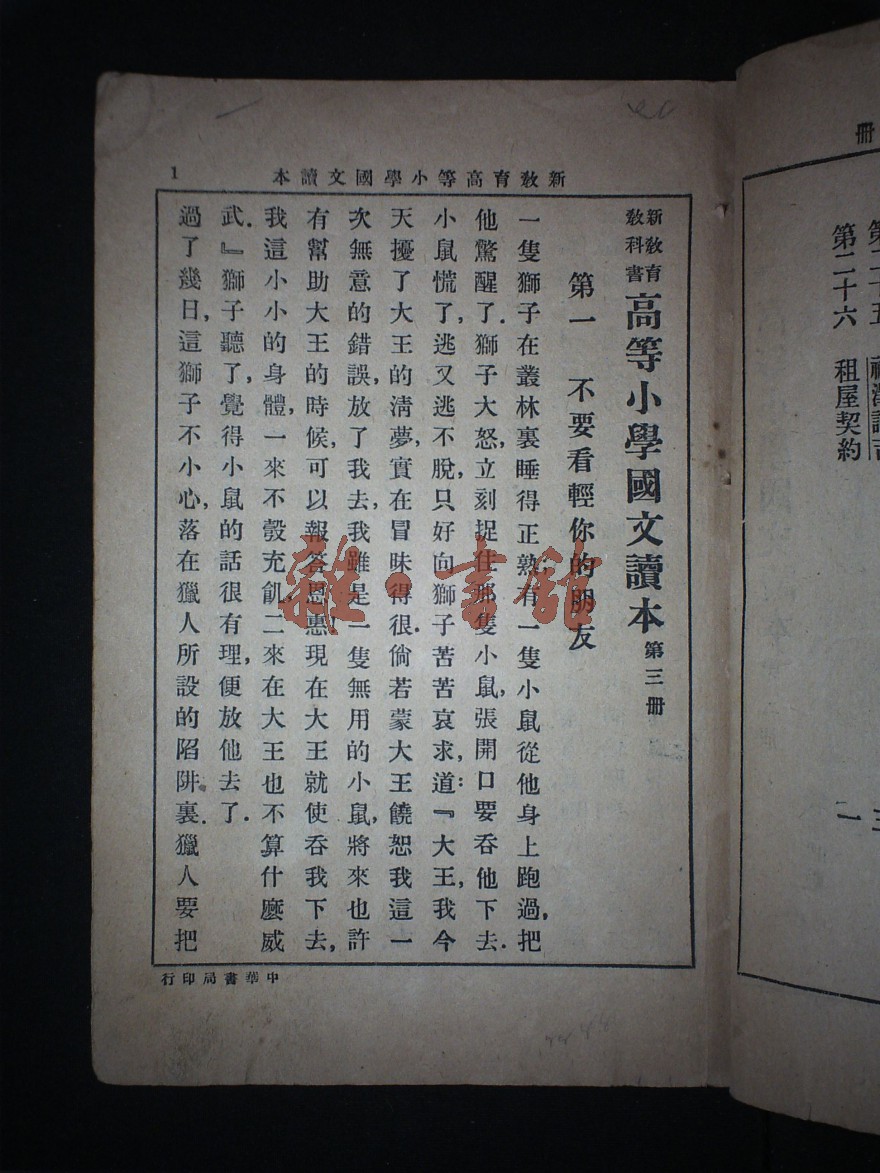 冊
第二十五
第二十六 租屋契約
一
新教育高等小學國文讀本
1
新教育
教科書
高等小學國文讀本 第三冊
第一 不要看輕你的朋友
一隻獅子在叢林裏睡得正熟,有一隻小鼠從他身上跑過,把
他驚醒了.獅子大怒,立刻捉住那隻小鼠,張開口要吞他下去.
小鼠慌了,逃又逃不脫,只好向獅子苦苦哀求,道:『大王,我今
天擾了大王的清夢,實在冒昧得很.倘若蒙大王饒恕我這一
次無意的錯誤,放了我去,我雖是一隻無用的小鼠,將來也許
有幫助大王的時候,可以報答恩惠.現在大王就使吞我下去,
我這小小的身體,一來不彀充飢,二來在大王也不算什麼威
武.』獅子聽了,覺得小鼠的話很有理,便放他去了.
過了幾日,這獅子不小心,落在獵人所設的陷阱裏.獵人要把
中華書局印行
雜·書館